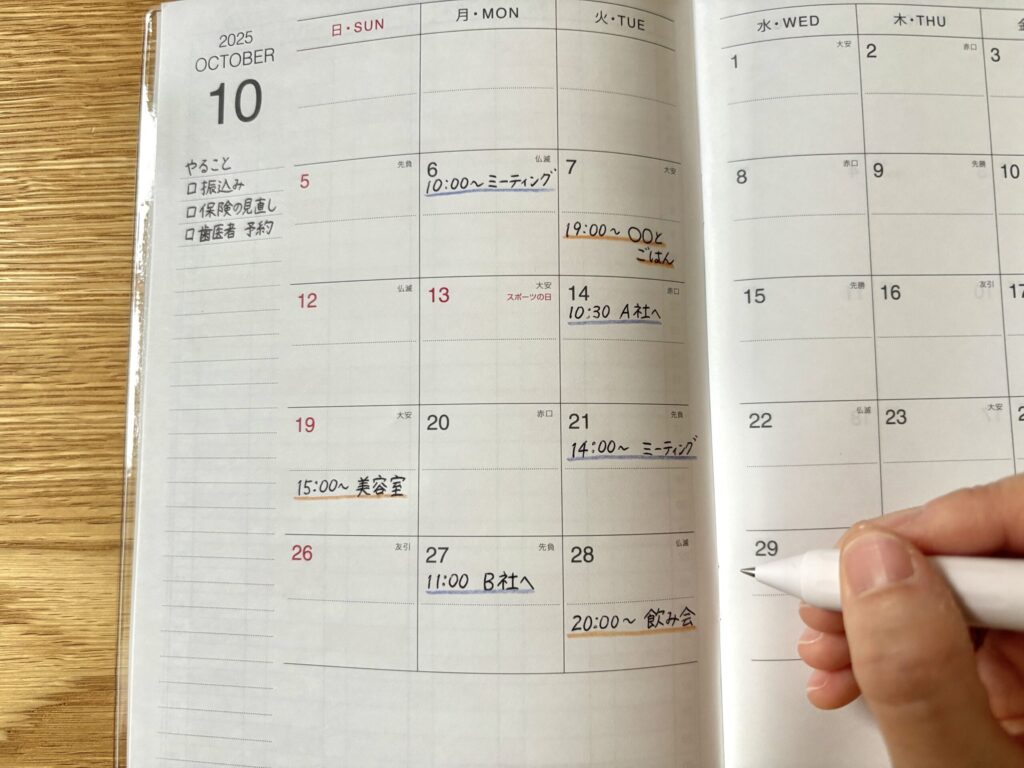 2025
OCTOBER
10
やること
□ 振込み
□ 保険の見直し
□ 歯医者 予約
日・SUN 月・MON 火・TUE 水・WED 木・THU 金
1 大安 2 赤口 3
5 先負 6 仏滅 7 大安 8 赤口 9 先勝 10
10:00〜 ミーティング
19:00〜 〇〇と
ごはん
12 仏滅 13 大安 14 赤口 15 先勝 16 友引 17
スポーツの日
10:30 A社へ
19 大安 20 赤口 21 先負 22 仏滅 23 大安 2
14:00〜 ミーティング
15:00〜 美容室
26 友引 27 先負 28 仏滅 29
11:00 B社へ
20:00〜 飲み会